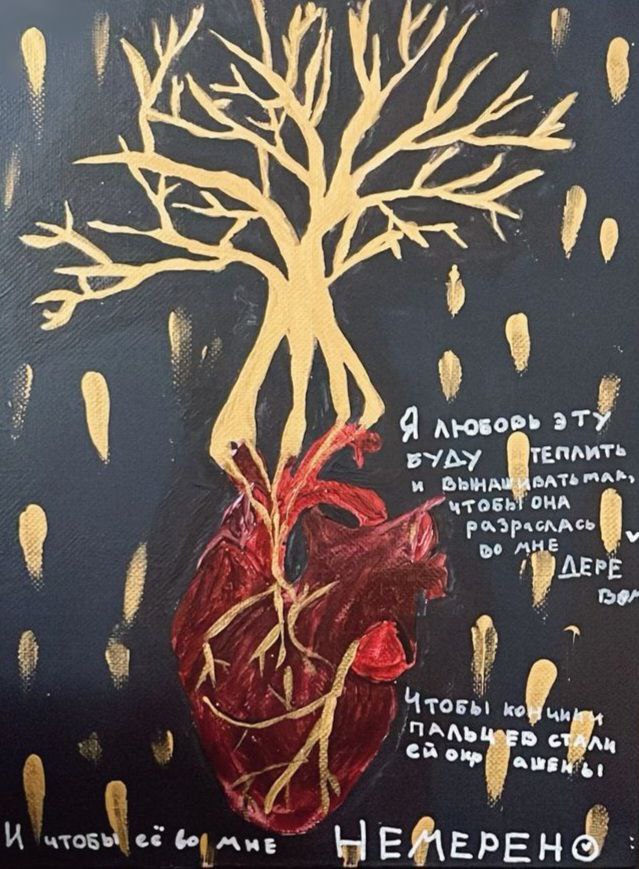 Я ЛЮБОВЬ ЭТУ
БУДУ ТЕПЛИТЬ
И ВЫНАШИВАТЬ ТАК,
ЧТОБЫ ОНА
РАЗРАСЛАСЬ
ВО МНЕ
ДЕРЕ
ВОМ
ЧТОБЫ КОНЧИКИ
ПАЛЬЦЕВ СТАЛИ
ЕЙ ОКРАШЕНЫ
И ЧТОБЫ её во МНЕ
НЕМЕРЕНО